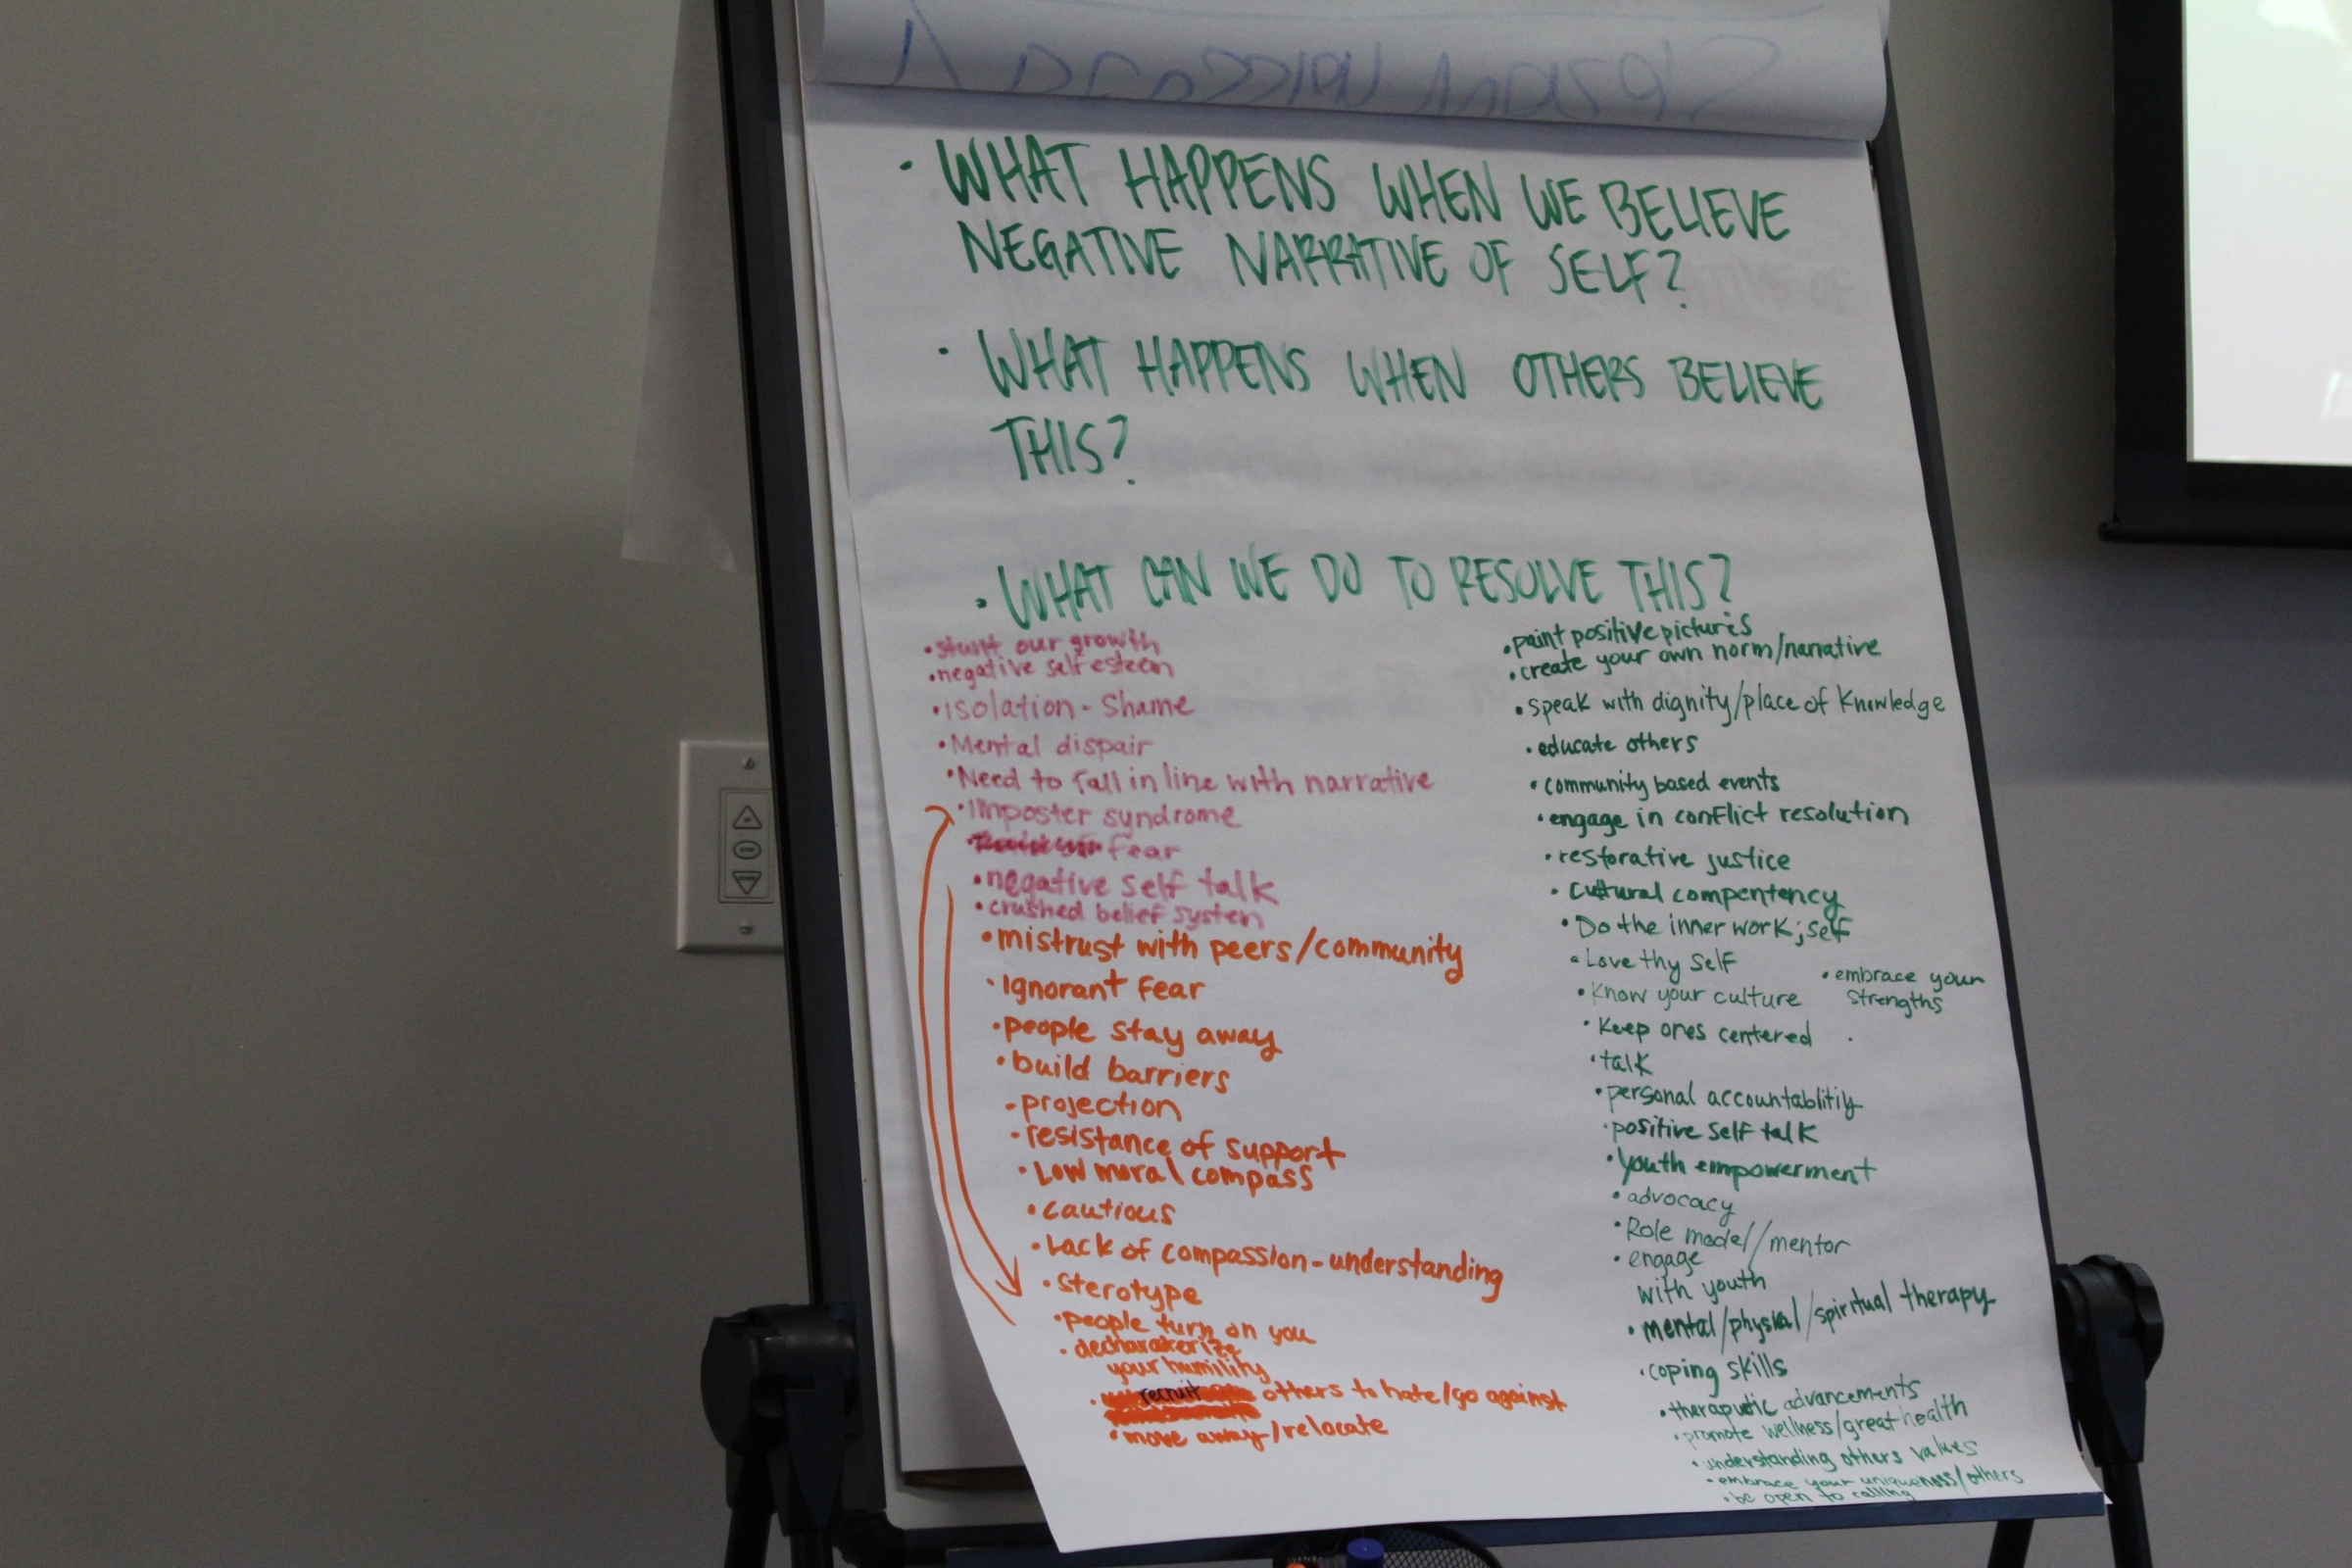 • WHAT HAPPENS WHEN WE BELIEVE
NEGATIVE NARRATIVE OF SELF?
• WHAT HAPPENS WHEN OTHERS BELIEVE
THIS?
• WHAT CAN WE DO TO RESOLVE THIS?
• stunt our growth
• negative self esteem
• isolation - Shame
• Mental dispair
• Need to fall in line with narrative
• Imposter syndrome
fear
• negative self talk
• crushed belief system
• mistrust with peers/community
• Ignorant fear
• people stay away
• build barriers
- projection
• resistance of support
• Low moral compass
• cautious
• Lack of compassion - understanding
• Sterotype
• people turn on you
• decharaterize
your humility
• recruit others to hate/go against
• move away/relocate
• paint positive pictures
• create your own norm/narrative
• speak with dignity/place of knowledge
• educate others
• community based events
• engage in conflict resolution
• restorative justice
• cultural compentency
• Do the inner work; self
• Love thy self
• Know your culture
• embrace your
strengths
• Keep ones centered
• talk
• personal accountablitiy
• positive self talk
• youth empowerment
• advocacy
• Role model/mentor
• engage
with youth
• mental/physial/spiritual therapy
• coping skills
• theraputic advancements
• promote wellness/great health
• understanding others values
• embrace your uniqueness/others
• be open to calling